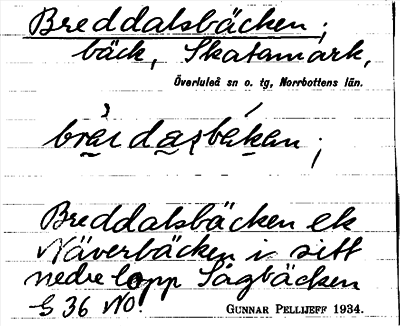 Breddalsbäcken;
bäck, Skatamark,
Överluleå sn o. tg, Norrbottens län.
Breddalsbäcken el
Näverbäcken i sitt
nedre lopp Sågbäcken
G 36 NO.
GUNNAR PELLIJEFF 1934.